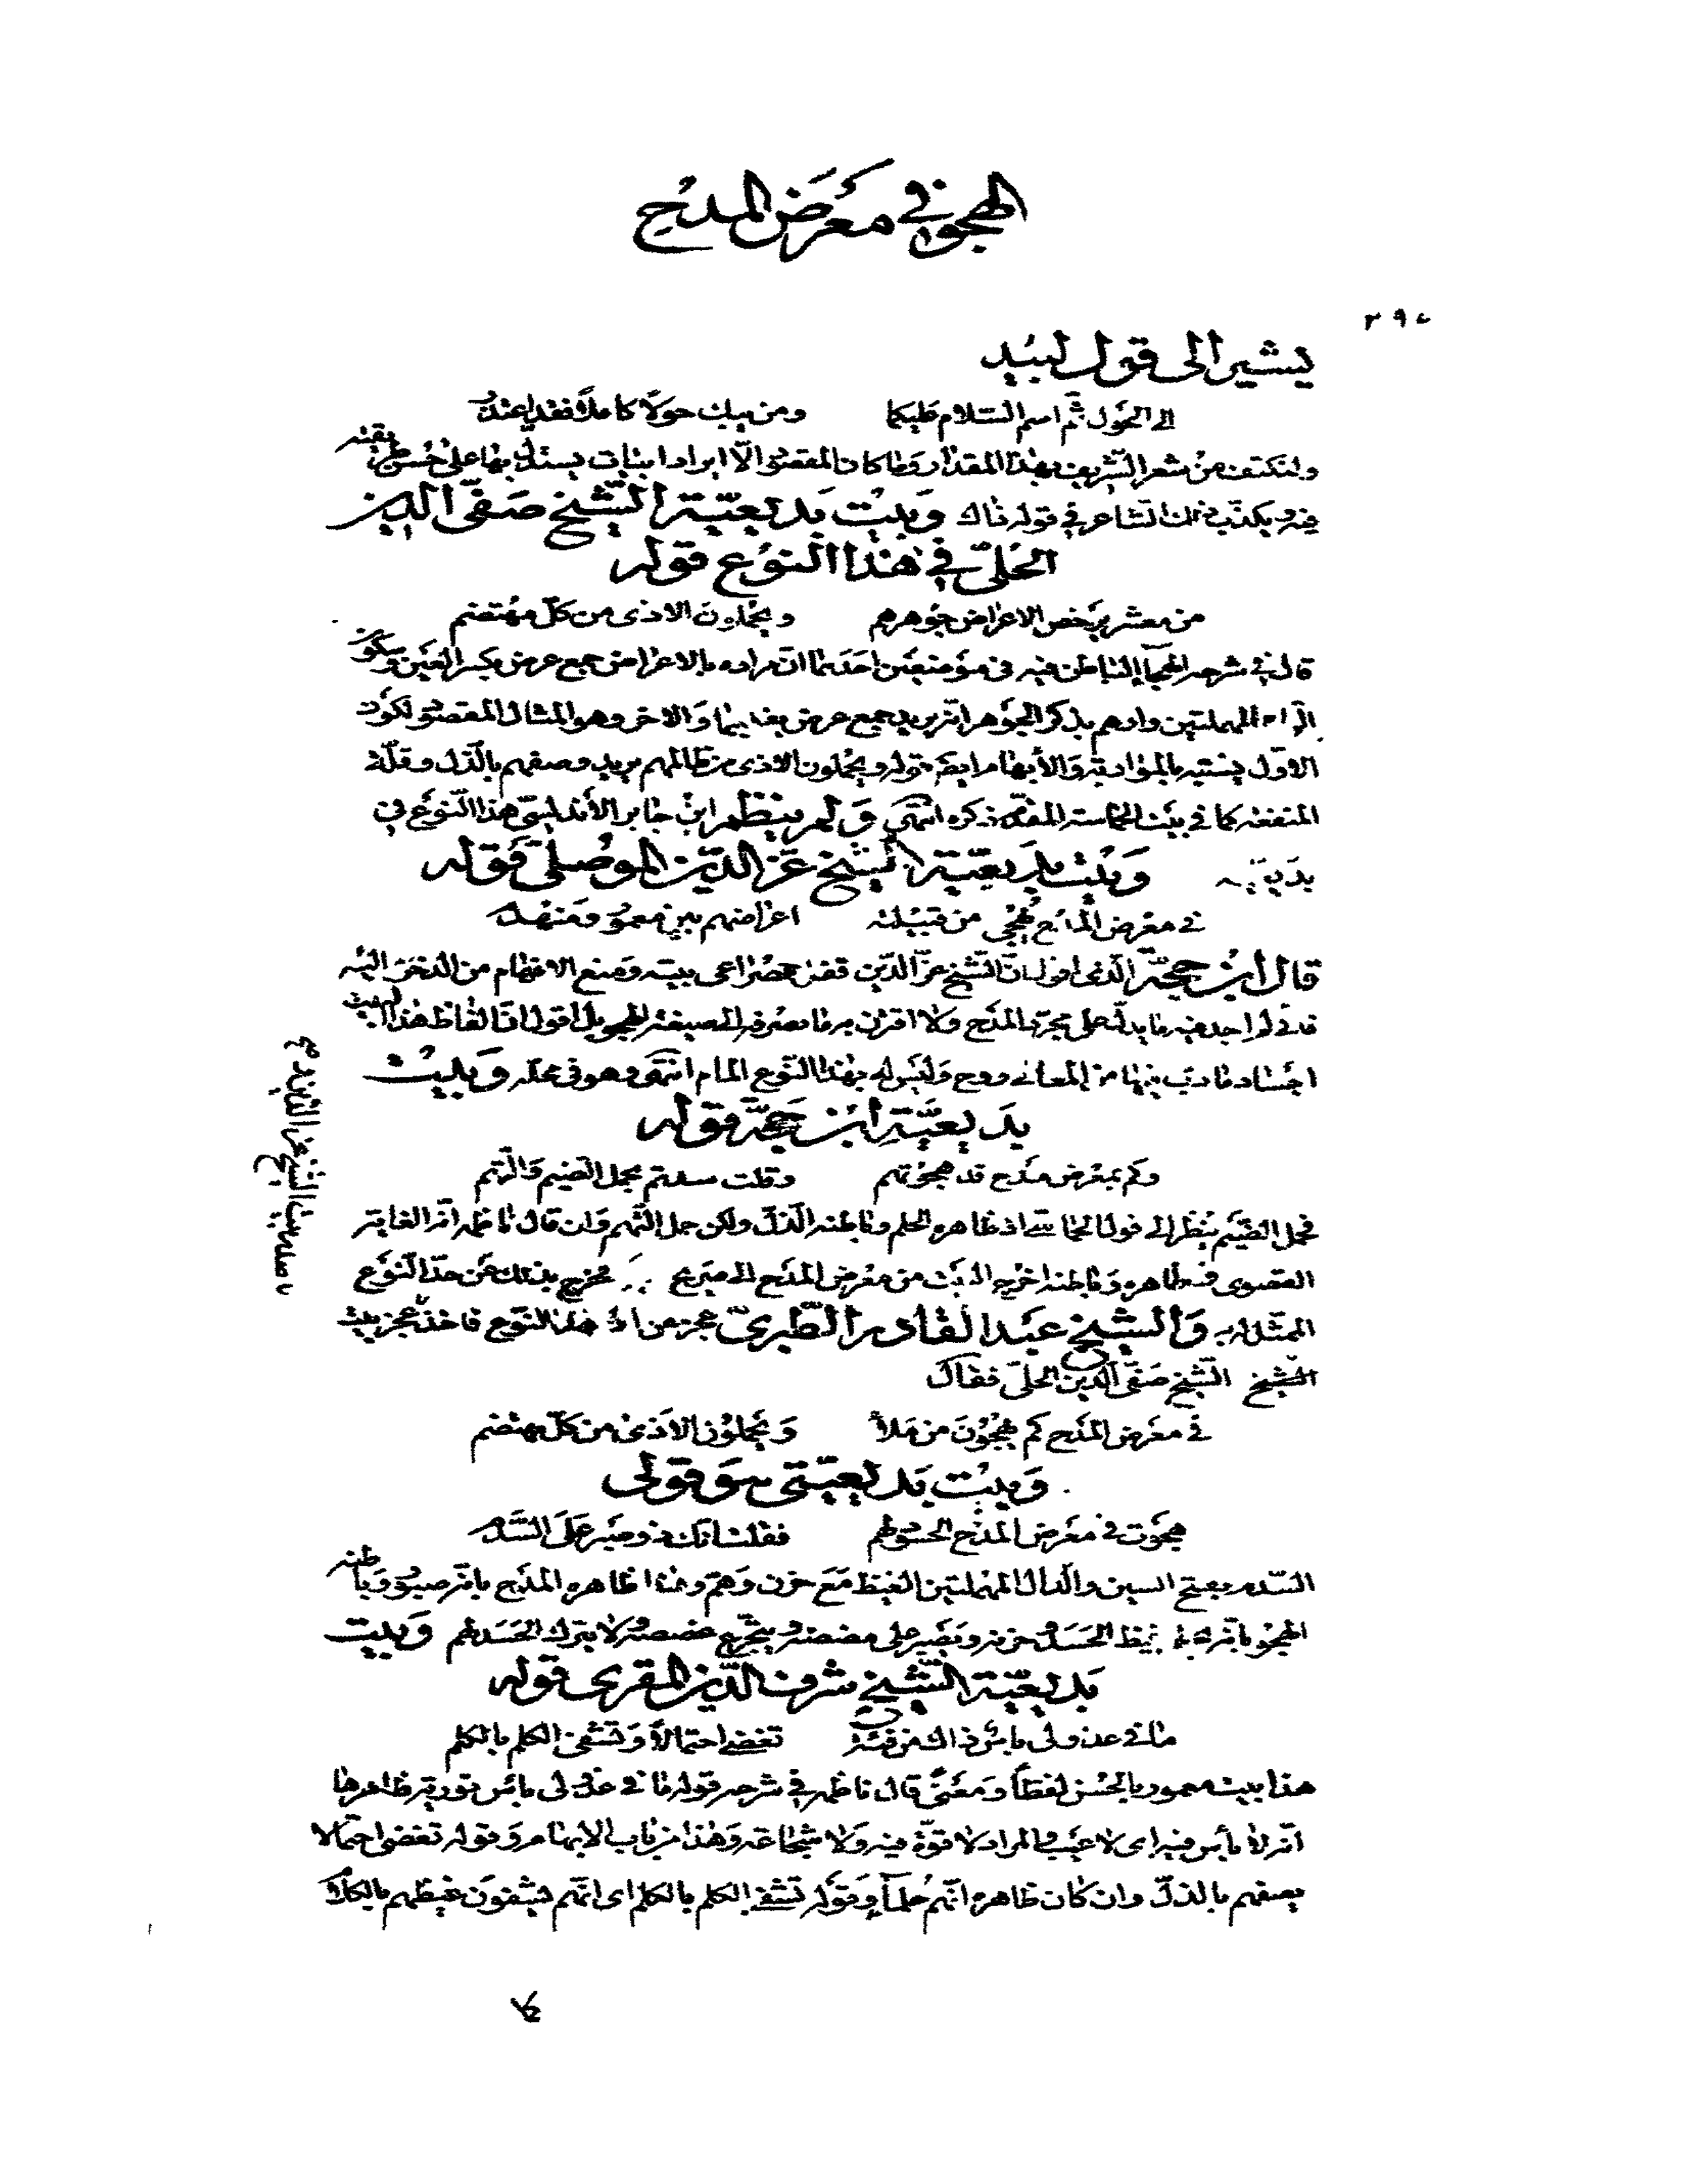 الهجو في معرض المدح
٢٩٠
يشير الى قول لبيد
الى الحول ثم اسم السلام عليكما ومن يبك حولا كاملا فقد اعتذر
ولنكتف من شعر الشريف بهذا المقدار وما كان المقصود الا ايراد ابيات يستدل بها على حسن طريقته
فيه ويكذب ذلك الشاعر في قوله ذاك وبيت بديعية الشيخ صفي الدين
الحلي في هذا النوع قوله
من معشر يرخص الاعراض جوهرهم ويحملون الاذى من كل مهتضم
قال في شرحه الهجاء الباطن فيه في موضعين احدهما ان مراده بالاعراض جمع عرض بكسر العين وسكون
الراء المهملتين واوهم بذكر الجوهر انه يريد جمع عرض بفتحهما والاخر وهو المثال المقصود لكون
الاول يشتبه بالمواربة والابهام ايضا قوله ويحملون الاذى من ظالمهم يريد وصفهم بالذل وقلة
المنفعة كما في بيت الحماسة المقدم ذكره انتهى ولم ينظم ابن جابر الأندلسي هذا النوع في
بديعيته وبيت بديعية الشيخ عز الدين الموصلي قوله
في معرض المدح تهجى من قبيلته اعراضهم بين معمور ومنهدم
قال ابن حجة الذي اقول ان الشيخ عز الدين قفل مصراعي بيته ومنع الافهام من الدخول اليه
فاني لم اجد فيه ما يدل على مجرى المدح ولا اقترن به ما يصرفه الى صيغة الهجو بل اقول ان الفاظ هذا البيت
اجساد ما دب فيها من المعاني روح وليس له بهذا النوع المام انتهى وهو في محله وبيت
بديعية ابن حجة قوله
وكم بمعرض مدح قد هجوتهم وقلت سدتم بحمل الضيم والتهم
فحمل الضيم ينظر الى قول الحماسي اذ ظاهره الحلم وباطنه الذل ولكن حمل التهم وان قال ناظمه انه الغاية
القصوى في ظاهره وباطنه اخرج البيت من معرض المدح الى صريح فخرج بذلك عن حد النوع
الممثل له به والشيخ عبد القادر الطبري عجز عن هذا النوع فاخذ عجز بيت
الشيخ الشيخ صفي الدين الحلي فقال
في معرض المدح كم يهجون من ملأ ويحملون الاذى من كل مهتضم
وبيت بديعيتي هو قولي
هجوت في معرض المدح الحسود لهم فقلت انك ذو صبر على السدم
السدم بفتح السين والدال المهملتين الغيظ مع حزن وهم وهذا ظاهره المدح بانه صبور وباطنه
الهجو بانه غيظ الحسد وحزنه ويصبر على مضضه ويتجرع غصصه ولا يترك الحسد لهم وبيت
بديعية الشيخ شرف الدين المقري قوله
ما في عذولي بأس ذاك من فئة تغضي احتمالا وتشفي الكلم بالكلم
هذا بيت معمور بالحسن لفظا ومعنى قال ناظمه في شرحه قوله ما في عذولي بأس تورية ظاهرها
انه لا بأس فيه اى لا عيب والمراد لا قوة فيه ولا شجاعة وهذا من باب الابهام وقوله تغضى احتمالا
يصفهم بالذل وان كان ظاهره انهم حلماء وقوله تشفى الكلم بالكلم اى انهم يشفون غيظهم بالكلام